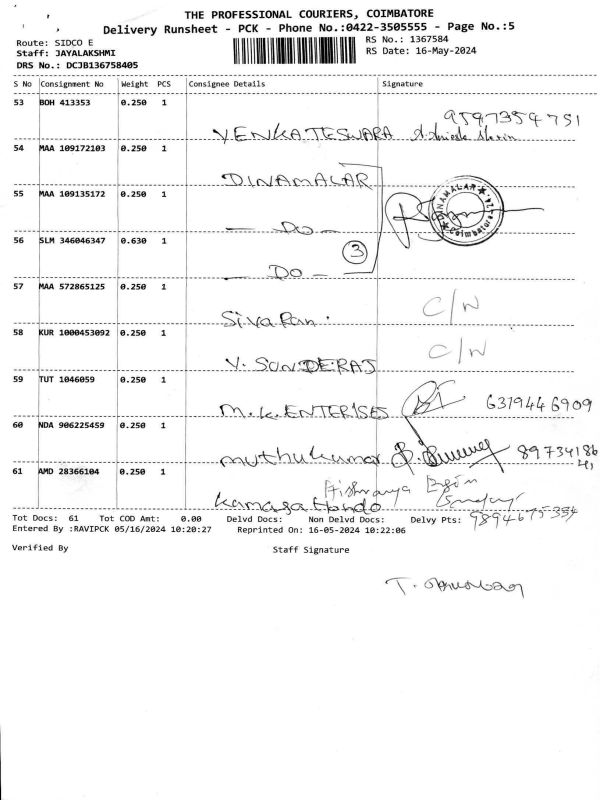 THE PROFESSIONAL COURIERS, COIMBATORE
Delivery Runsheet - PCK - Phone No.:0422-3505555 - Page No.:5
Route: SIDCO E
RS No.: 1367584
Staff: JAYALAKSHMI
RS Date: 16-May-2024
DRS No.: DCJB136758405
S No Consignment No Weight PCS Consignee Details Signature
53 BOH 413353 0.250 1
9597354751
VENKATESWARA
54 MAA 109172103 0.250 1
DINAMALAR
55 MAA 109135172 0.250 1
DINAMALAR
Coimbatore
— Do —
56 SLM 346046347 0.630 1
3
— Do —
57 MAA 572865125 0.250 1
C/N
Siva Ran.
58 KUR 1000453092 0.250 1
C/N
V. SUNDERAJ
59 TUT 1046059 0.250 1
M.K. ENTERISES 6379446909
60 NDA 906225459 0.250 1
muthukumar
61 AMD 28366104 0.250 1
Tot Docs: 61 Tot COD Amt: 0.00 Delvd Docs: Non Delvd Docs: Delvy Pts:
Entered By :RAVIPCK 05/16/2024 10:20:27 Reprinted On : 16-05-2024 10:22:06
Verified By Staff Signature